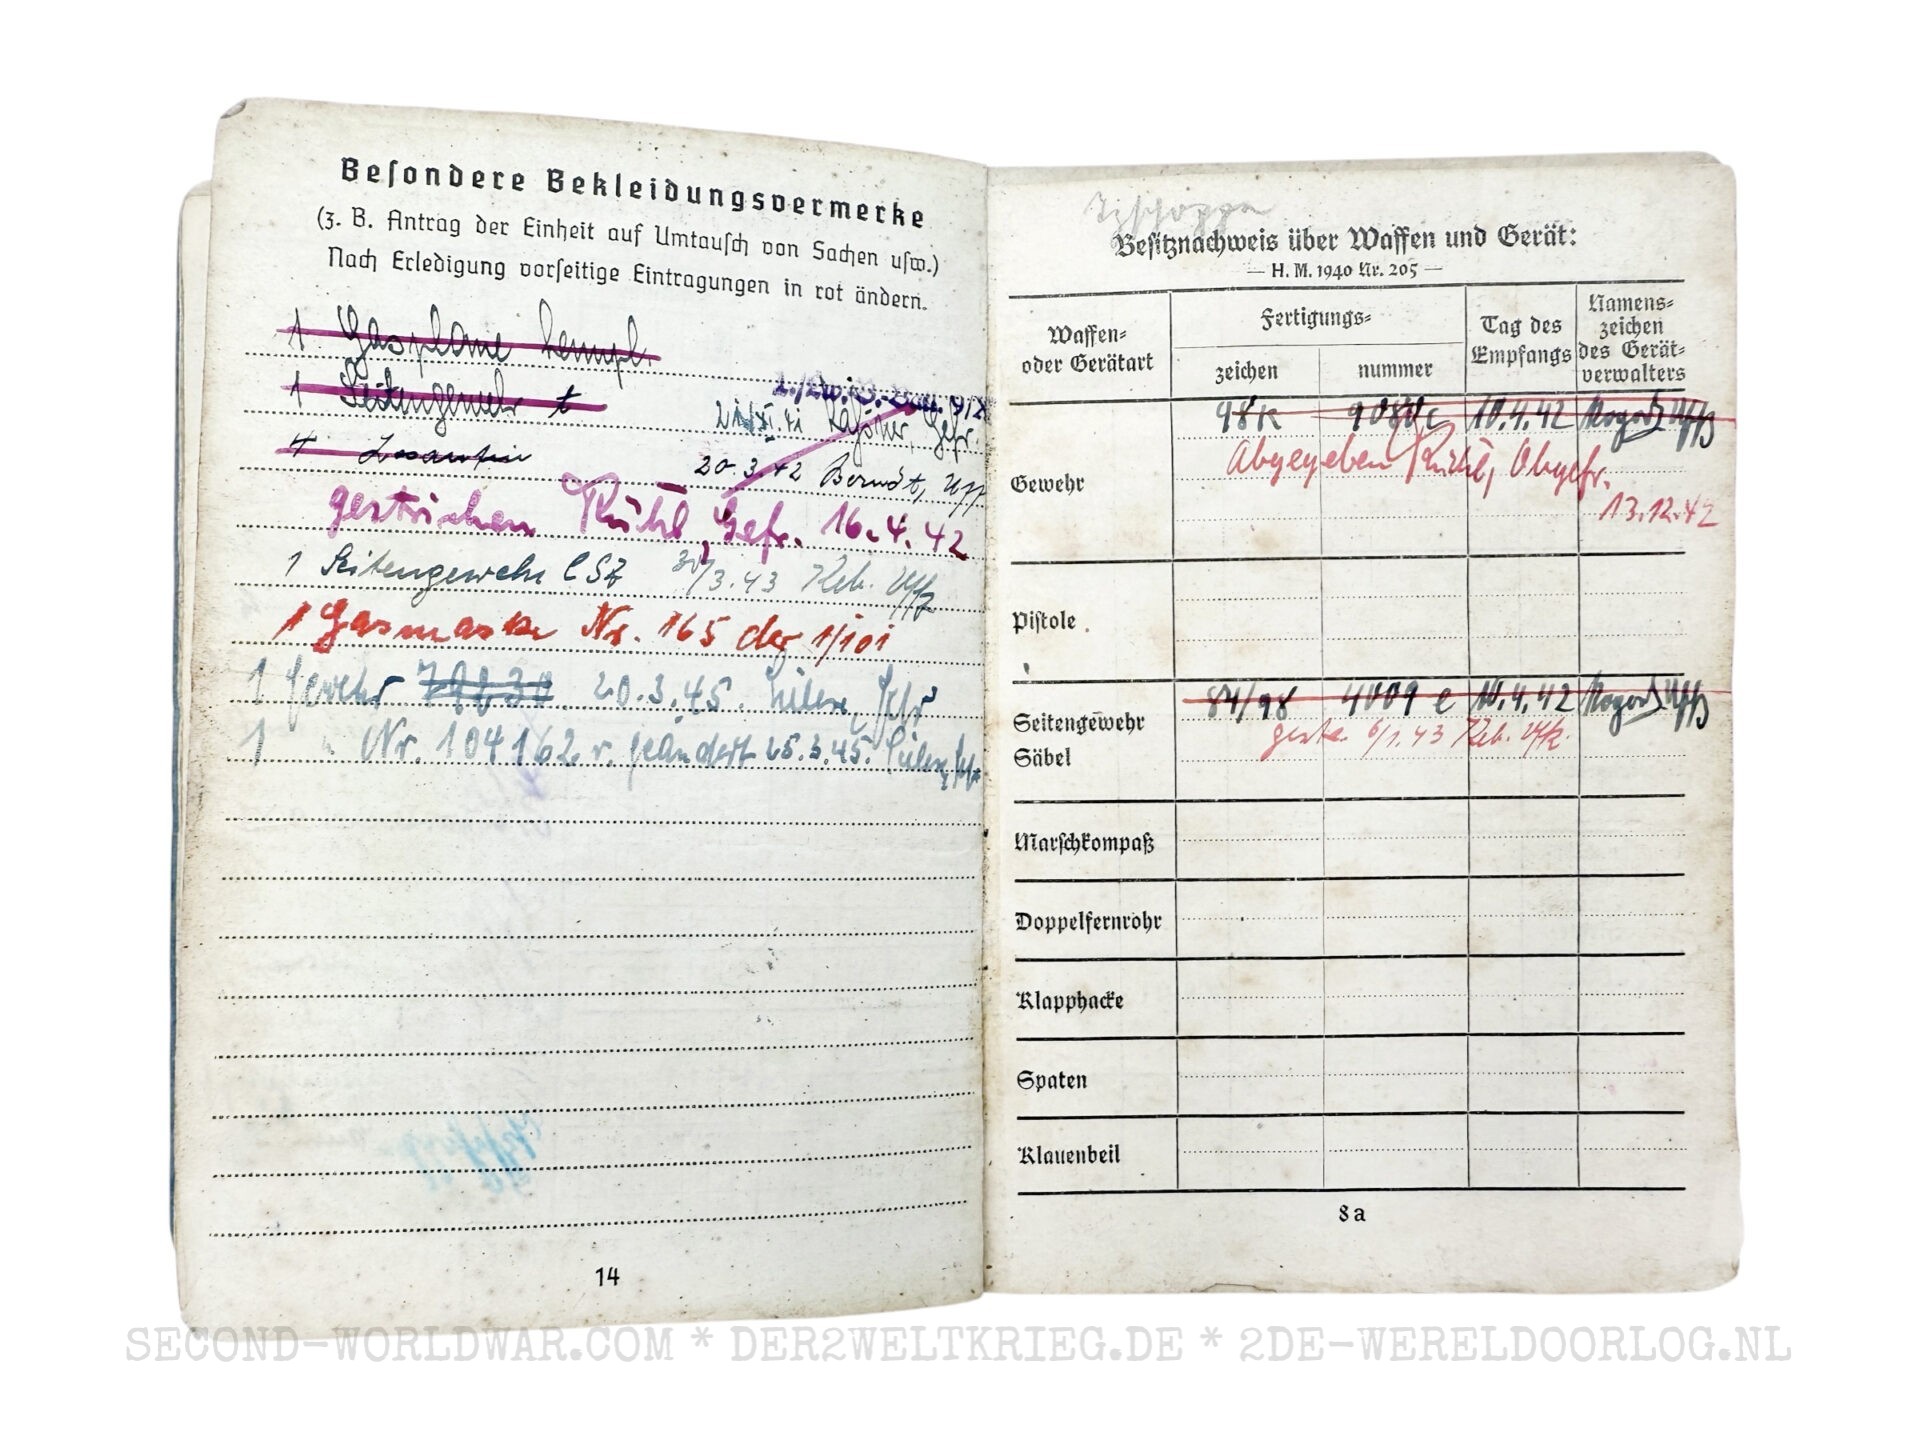 Besondere Bekleidungsvermerke
(z. B. Antrag der Einheit auf Umtausch von Sachen usw.)
Nach Erledigung vorseitige Eintragungen in rot ändern.
1 Gasplane kompl.
1 Seitengewehr t
4 Losantin
20.3.42 Berndt, Uff.
gestrichen Rühl, Gefr. 16.4.42
1 Seitengewehr 30/3.43 Keb. Uffz
1 Gasmaske Nr. 165 der 1/101
1 Gewehr 20.3.45.
1 " Nr. 104162 r. geändert 25.3.45.
14
Besitznachweis über Waffen und Gerät:
— H. M. 1940 Nr. 205 —
Waffen- oder Gerätart
Fertigungs-
zeichen
nummer
Tag des Empfangs
Namens- zeichen des Gerät- verwalters
Gewehr
98k 10.4.42 Uffz
Abgegeben Rühl, Obgefr.
13.12.42
Pistole
Seitengewehr
Säbel
84/98 4009 e 10.4.42 Uffz
gestr. 6/1.43 Keb. Uffz.
Marschkompaß
Doppelfernrohr
Klapphacke
Spaten
Klauenbeil
8a
SECOND-WORLDWAR.COM * DER2WELTKRIEG.DE * 2DE-WERELDOORLOG.NL